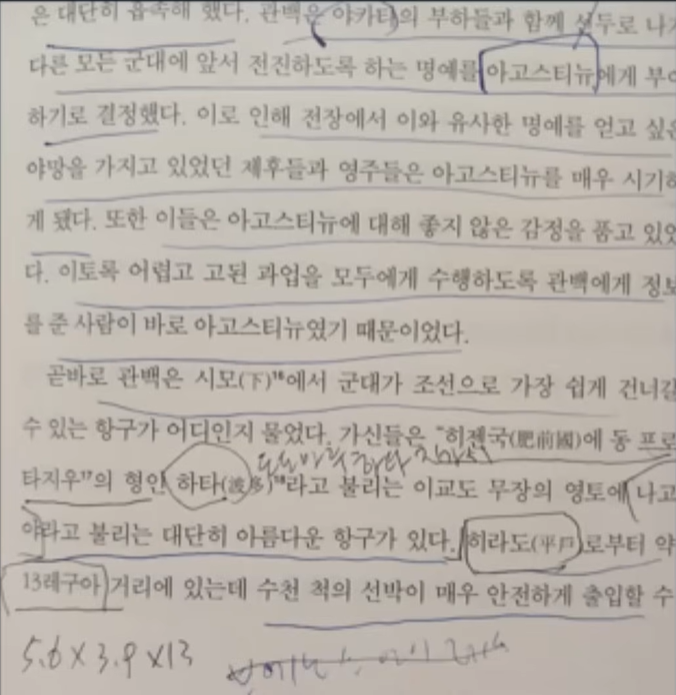 은 대단히 흡족해 했다. 관백은 아카타의 부하들과 함께 선두로 나가
다른 모든 군대에 앞서 전진하도록 하는 명예를 아고스티뉴에게 부여
하기로 결정했다. 이로 인해 전장에서 이와 유사한 명예를 얻고 싶은
야망을 가지고 있었던 제후들과 영주들은 아고스티뉴를 매우 시기하
게 됐다. 또한 이들은 아고스티뉴에 대해 좋지 않은 감정을 품고 있었
다. 이토록 어렵고 고된 과업을 모두에게 수행하도록 관백에게 정보
를 준 사람이 바로 아고스티뉴였기 때문이었다.
곧바로 관백은 시모(下)¹⁶에서 군대가 조선으로 가장 쉽게 건너갈
수 있는 항구가 어디인지 물었다. 가신들은 “히젠국(肥前國)에 동 프로
타지우¹⁷의 형인 하타(波多)¹⁸라고 불리는 이교도 무장의 영토에 나고
야라고 불리는 대단히 아름다운 항구가 있다. 히라도(平戶)로부터 약
13레구아 거리에 있는데 수천 척의 선박이 매우 안전하게 출입할 수
5.6 x 3.9 x 13